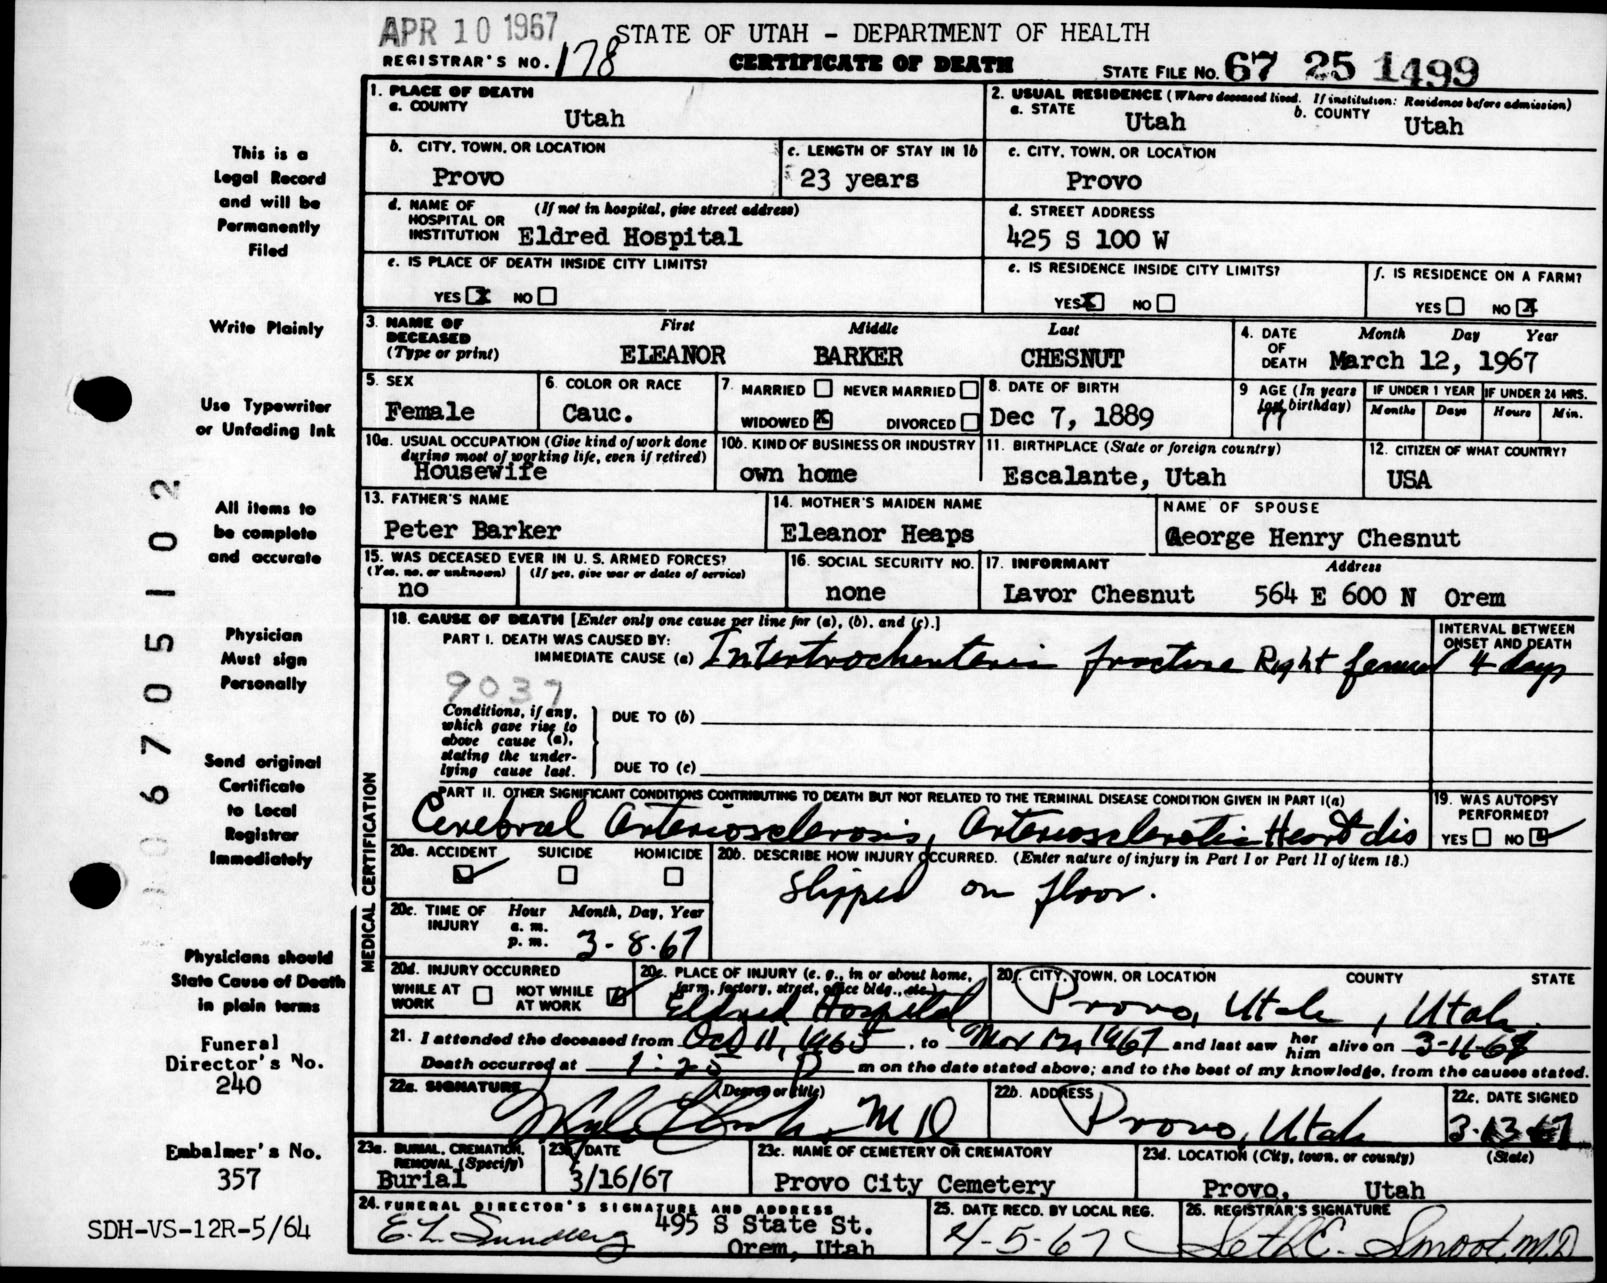 APR 10 1967
STATE OF UTAH - DEPARTMENT OF HEALTH
REGISTRAR'S NO. 178
CERTIFICATE OF DEATH
STATE FILE NO. 67 25 1499
1. PLACE OF DEATH
a. COUNTY
Utah
2. USUAL RESIDENCE (Where deceased lived. If institution: Residence before admission)
a. STATE
Utah
b. COUNTY
Utah
b. CITY, TOWN, OR LOCATION
Provo
c. LENGTH OF STAY IN 1b
23 years
c. CITY, TOWN, OR LOCATION
Provo
d. NAME OF HOSPITAL OR INSTITUTION
(If not in hospital, give street address)
Eldred Hospital
d. STREET ADDRESS
425 S 100 W
e. IS PLACE OF DEATH INSIDE CITY LIMITS?
YES X NO
e. IS RESIDENCE INSIDE CITY LIMITS?
YES X NO
f. IS RESIDENCE ON A FARM?
YES NO X
3. NAME OF DECEASED
(Type or print)
First Middle Last
ELEANOR BARKER CHESNUT
4. DATE OF DEATH
Month Day Year
March 12, 1967
5. SEX
Female
6. COLOR OR RACE
Cauc.
7. MARRIED NEVER MARRIED
WIDOWED X DIVORCED
8. DATE OF BIRTH
Dec 7, 1889
9 AGE (In years last birthday)
77
IF UNDER 1 YEAR
Months Days
IF UNDER 24 HRS.
Hours Min.
10a. USUAL OCCUPATION (Give kind of work done during most of working life, even if retired)
Housewife
10b. KIND OF BUSINESS OR INDUSTRY
own home
11. BIRTHPLACE (State or foreign country)
Escalante, Utah
12. CITIZEN OF WHAT COUNTRY?
USA
13. FATHER'S NAME
Peter Barker
14. MOTHER'S MAIDEN NAME
Eleanor Heaps
NAME OF SPOUSE
George Henry Chesnut
15. WAS DECEASED EVER IN U. S. ARMED FORCES?
(Yes, no, or unknown) (If yes, give war or dates of service)
no
16. SOCIAL SECURITY NO.
none
17. INFORMANT Address
Lavor Chesnut 564 E 600 N Orem
MEDICAL CERTIFICATION
18. CAUSE OF DEATH [Enter only one cause per line for (a), (b), and (c).]
PART I. DEATH WAS CAUSED BY:
IMMEDIATE CAUSE (a) Intertrochenteric fracture Right femur
INTERVAL BETWEEN ONSET AND DEATH
4 days
9037
Conditions, if any, which gave rise to above cause (a), stating the underlying cause last.
DUE TO (b)
DUE TO (c)
PART II. OTHER SIGNIFICANT CONDITIONS CONTRIBUTING TO DEATH BUT NOT RELATED TO THE TERMINAL DISEASE CONDITION GIVEN IN PART I(a)
Cerebral Arteriosclerosis, Arteriosclerotic Heart dis
19. WAS AUTOPSY PERFORMED?
YES NO
20a. ACCIDENT SUICIDE HOMICIDE
20b. DESCRIBE HOW INJURY OCCURRED. (Enter nature of injury in Part I or Part II of item 18.)
Slipped on floor.
20c. TIME OF INJURY
Hour Month, Day, Year
a. m.
p. m. 3-8-67
20d. INJURY OCCURRED
WHILE AT WORK NOT WHILE AT WORK
20e. PLACE OF INJURY (e. g., in or about home, farm, factory, street, office bldg., etc.)
Eldred Hospital
20f. CITY, TOWN, OR LOCATION COUNTY STATE
Provo, Utah, Utah.
21. I attended the deceased from Oct 11, 1965, to Mar 12, 1967 and last saw her him alive on 3-11-67
Death occurred at 1:25 P m on the date stated above; and to the best of my knowledge, from the causes stated.
22a. SIGNATURE (Degree or title)
M D
22b. ADDRESS
Provo, Utah
22c. DATE SIGNED
3-13-67
23a. BURIAL, CREMATION, REMOVAL (Specify)
Burial
23b. DATE
3/16/67
23c. NAME OF CEMETERY OR CREMATORY
Provo City Cemetery
23d. LOCATION (City, town, or county) (State)
Provo, Utah
24. FUNERAL DIRECTOR'S SIGNATURE AND ADDRESS
E. L. Sundberg
495 S State St.
Orem, Utah
25. DATE RECD. BY LOCAL REG.
4-5-67
26. REGISTRAR'S SIGNATURE
Seth C. Smoot, M.D
This is a
Legal Record
and will be
Permanently
Filed
Write Plainly
Use Typewriter
or Unfading Ink
All items to
be complete
and accurate
Physician
Must sign
Personally
Send original
Certificate
to Local
Registrar
Immediately
Physicians should
State Cause of Death
in plain terms
Funeral
Director's No.
240
Embalmer's No.
357
SDH-VS-12R-5/64
0 6 7 0 5 1 0 2